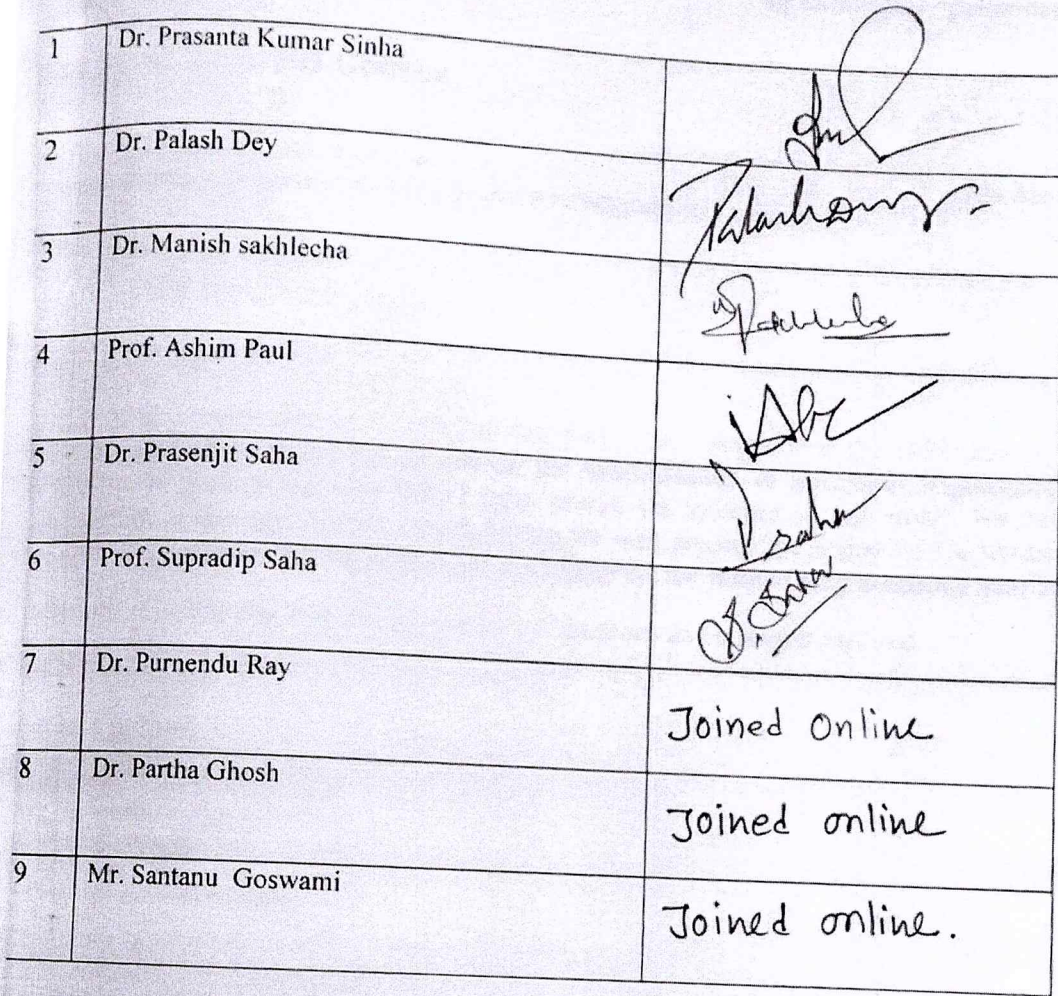 1 Dr. Prasanta Kumar Sinha
2 Dr. Palash Dey
3 Dr. Manish sakhlecha
4 Prof. Ashim Paul
5 Dr. Prasenjit Saha
6 Prof. Supradip Saha
S. Saha
7 Dr. Purnendu Ray
Joined Online
8 Dr. Partha Ghosh
Joined online
9 Mr. Santanu Goswami
Joined online.